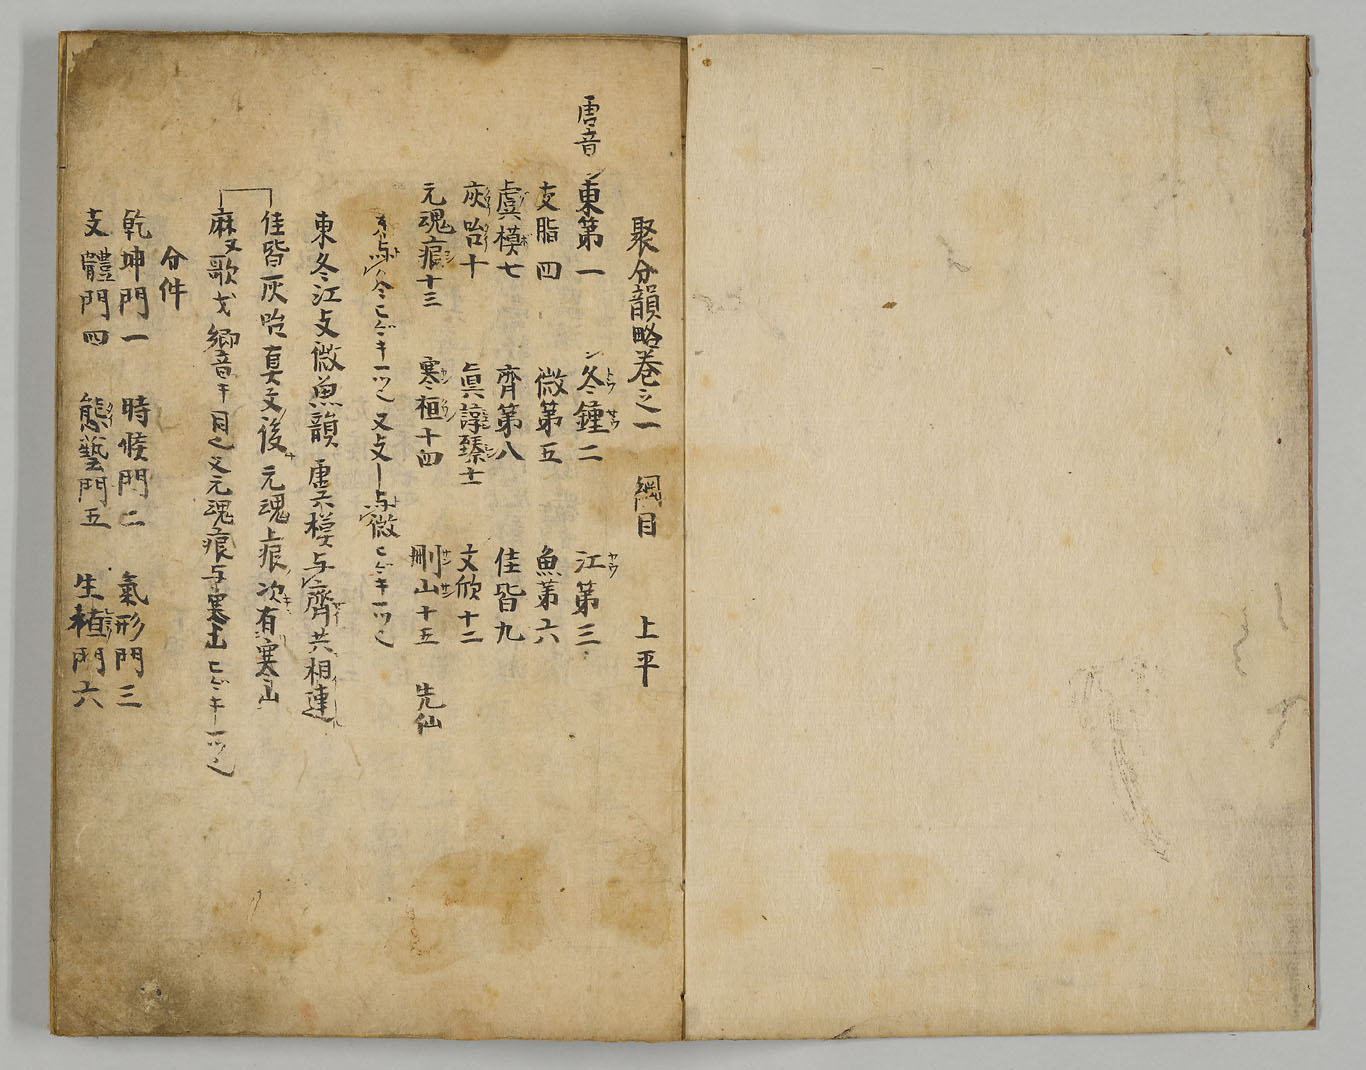 聚分韻略卷之一 綱目 上平
唐音 東第一 冬鍾二 江第三
支脂四 微第五 魚第六
虞模七 齊第八 佳皆九
灰咍十 眞諄臻十一 文欣十二
元魂痕十三 寒桓十四 刪山十五 先仙
東与冬 又支 与微
東冬江支微魚韻 虞模与齊共相連
佳皆灰咍真文後 元魂痕次有寒山
麻又歌戈郷音 同 又元魂痕与寒
分件
乾坤門一 時候門二 氣形門三
支體門四 態藝門五 生植門六